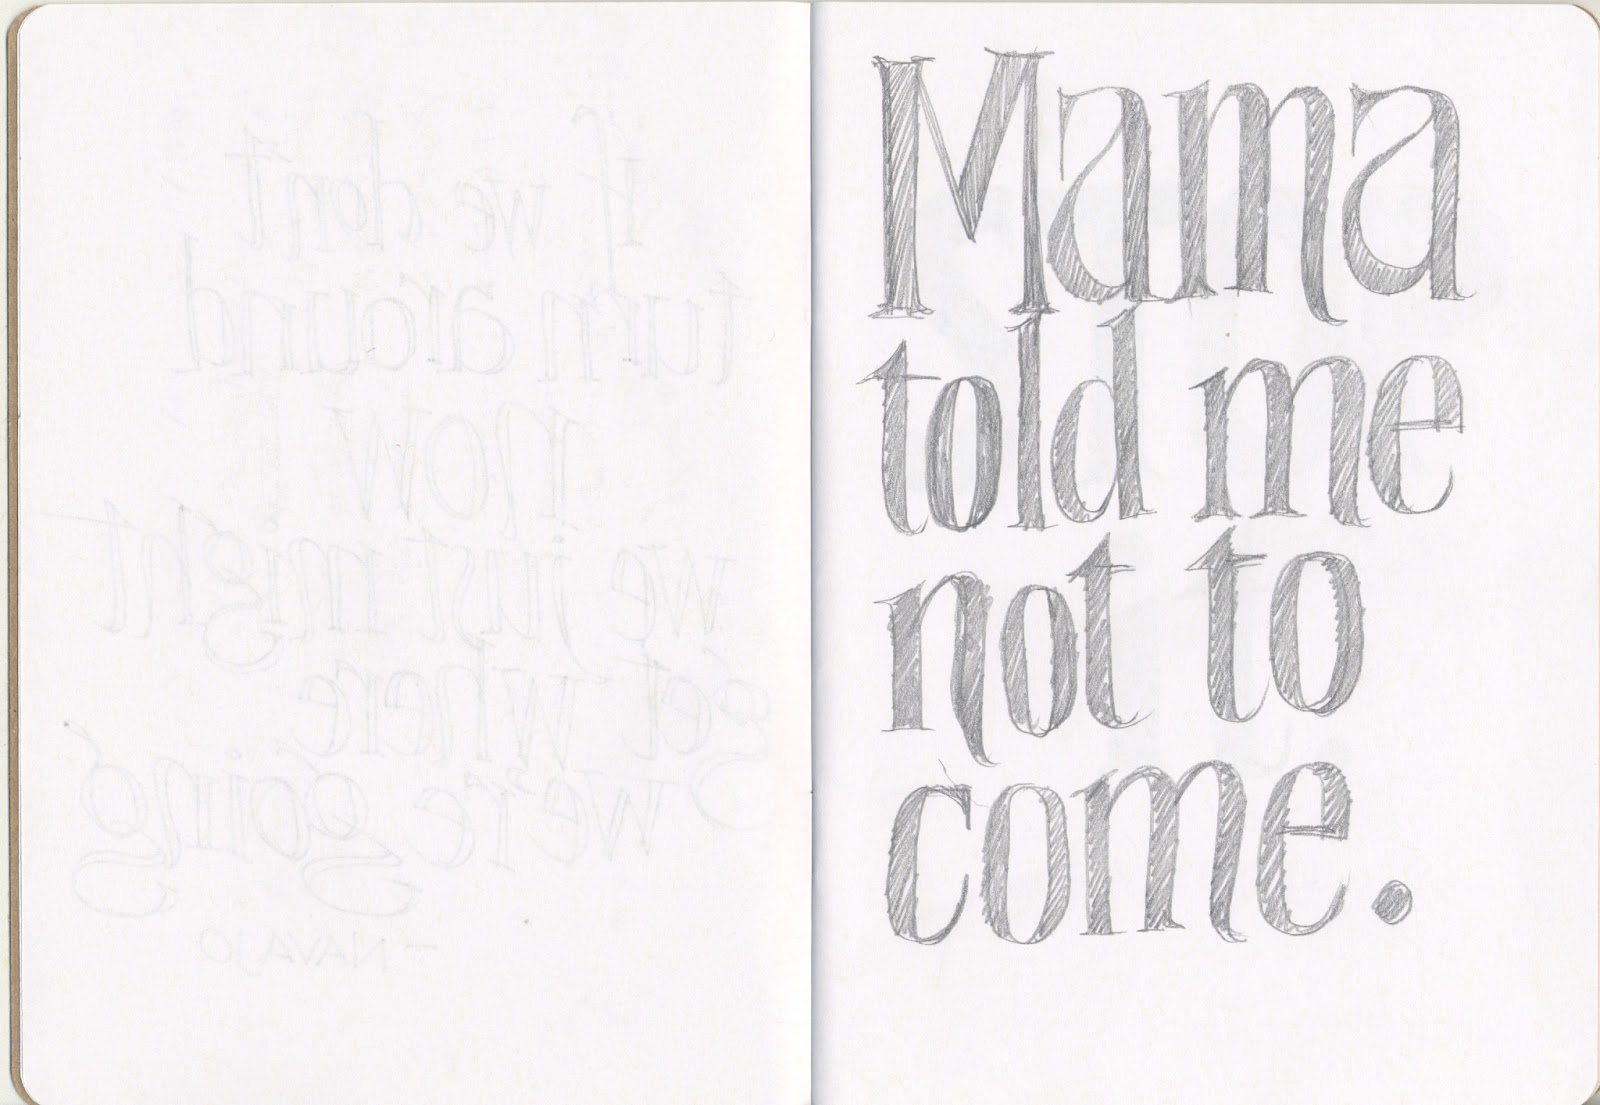 If we don't
turn around
now
we just might
get where
we're going
- NAVAJO
Mama
told me
not to
come.